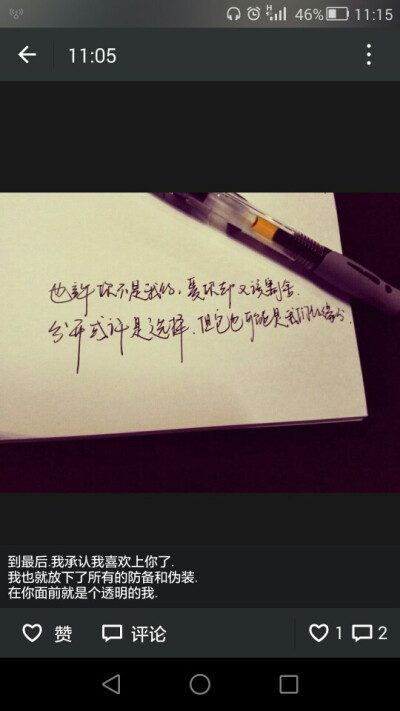 46% 11:15
11:05
也许你不是我的,爱你却又该割舍.
分开或许是选择.但它也可能是我们的缘分.
到最后.我承认我喜欢上你了.
我也就放下了所有的防备和伪装.
在你面前就是个透明的我.
赞 评论 1 2